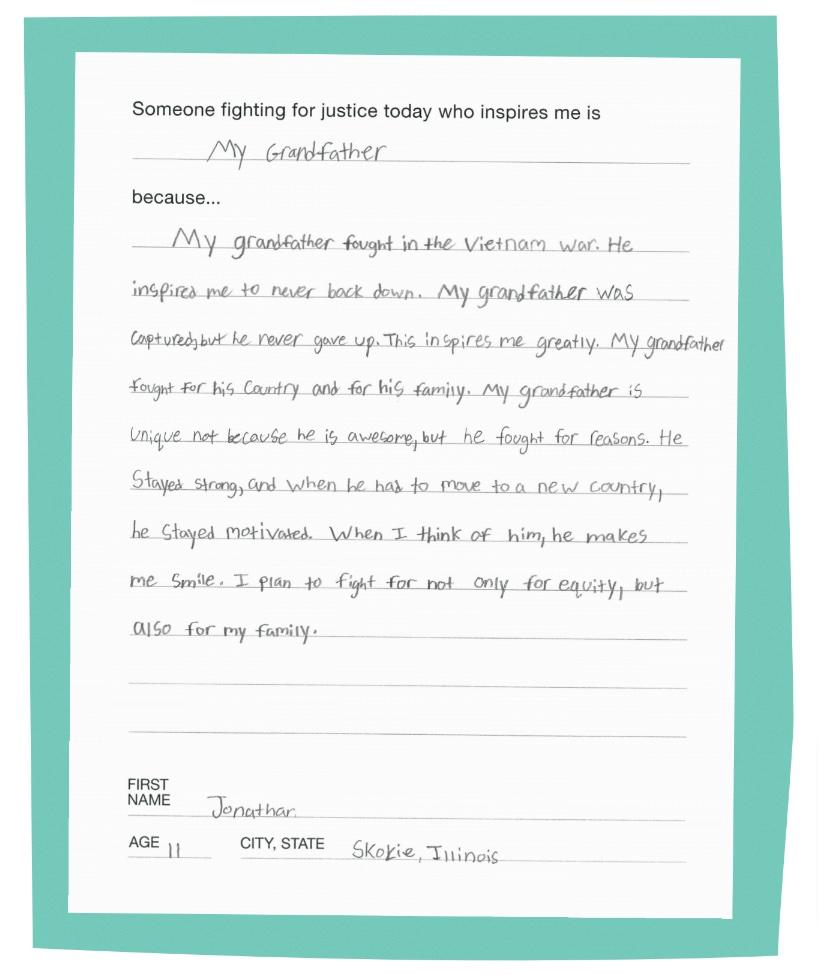 Someone fighting for justice today who inspires me is
My Grandfather
because...
My grandfather fought in the Vietnam war. He
inspired me to never back down. My grandfather was
captured, but he never gave up. This inspires me greatly. My grandfather
fought for his Country and for his family. My grandfather is
unique not because he is awesome, but he fought for reasons. He
Stayed strong, and when he had to move to a new country,
he stayed motivated. When I think of him, he makes
me smile. I plan to fight for not only for equity, but
also for my family.
FIRST
NAME Jonathan
AGE 11 CITY, STATE Skokie, Illinois